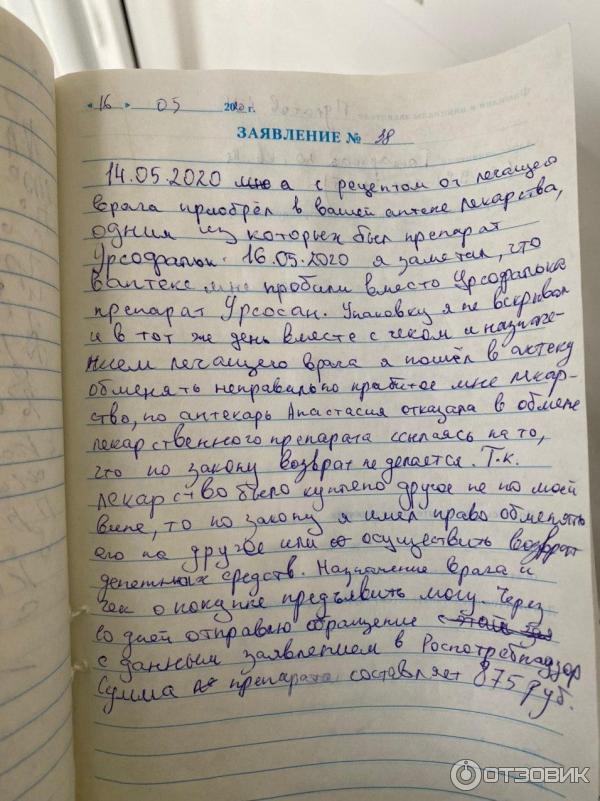 « 16 » 05 2020 г.
ЗАЯВЛЕНИЕ № 38
14.05.2020 мною а с рецептом от лечащего
врача приобрёл в вашей аптеке лекарства,
одним из которых был препарат
Урсофальк. 16.05.2020 я заметил, что
в аптеке мне пробили вместо Урсофалька
препарат Урсосан. Упаковку я не вскрывал
и в тот же день вместе с чеком и назначе-
нием лечащего врача я пошёл в аптеку
обменять неправильно пробитое мне лекар-
ство, но аптекарь Анастасия отказала в обмене
лекарственного препарата ссылаясь на то,
что по закону возврат не делается. Т.к.
лекарство было куплено другое не по моей
вине, то по закону я имел право обменять
его на другое или осуществить возврат
денежных средств. Назначение врача и
чек о покупке предъявить могу. Через
10 дней отправлю обращение
с данным заявлением в Роспотребнадзор
Сумма препарата составляет 875 руб.
ОТЗОВИК